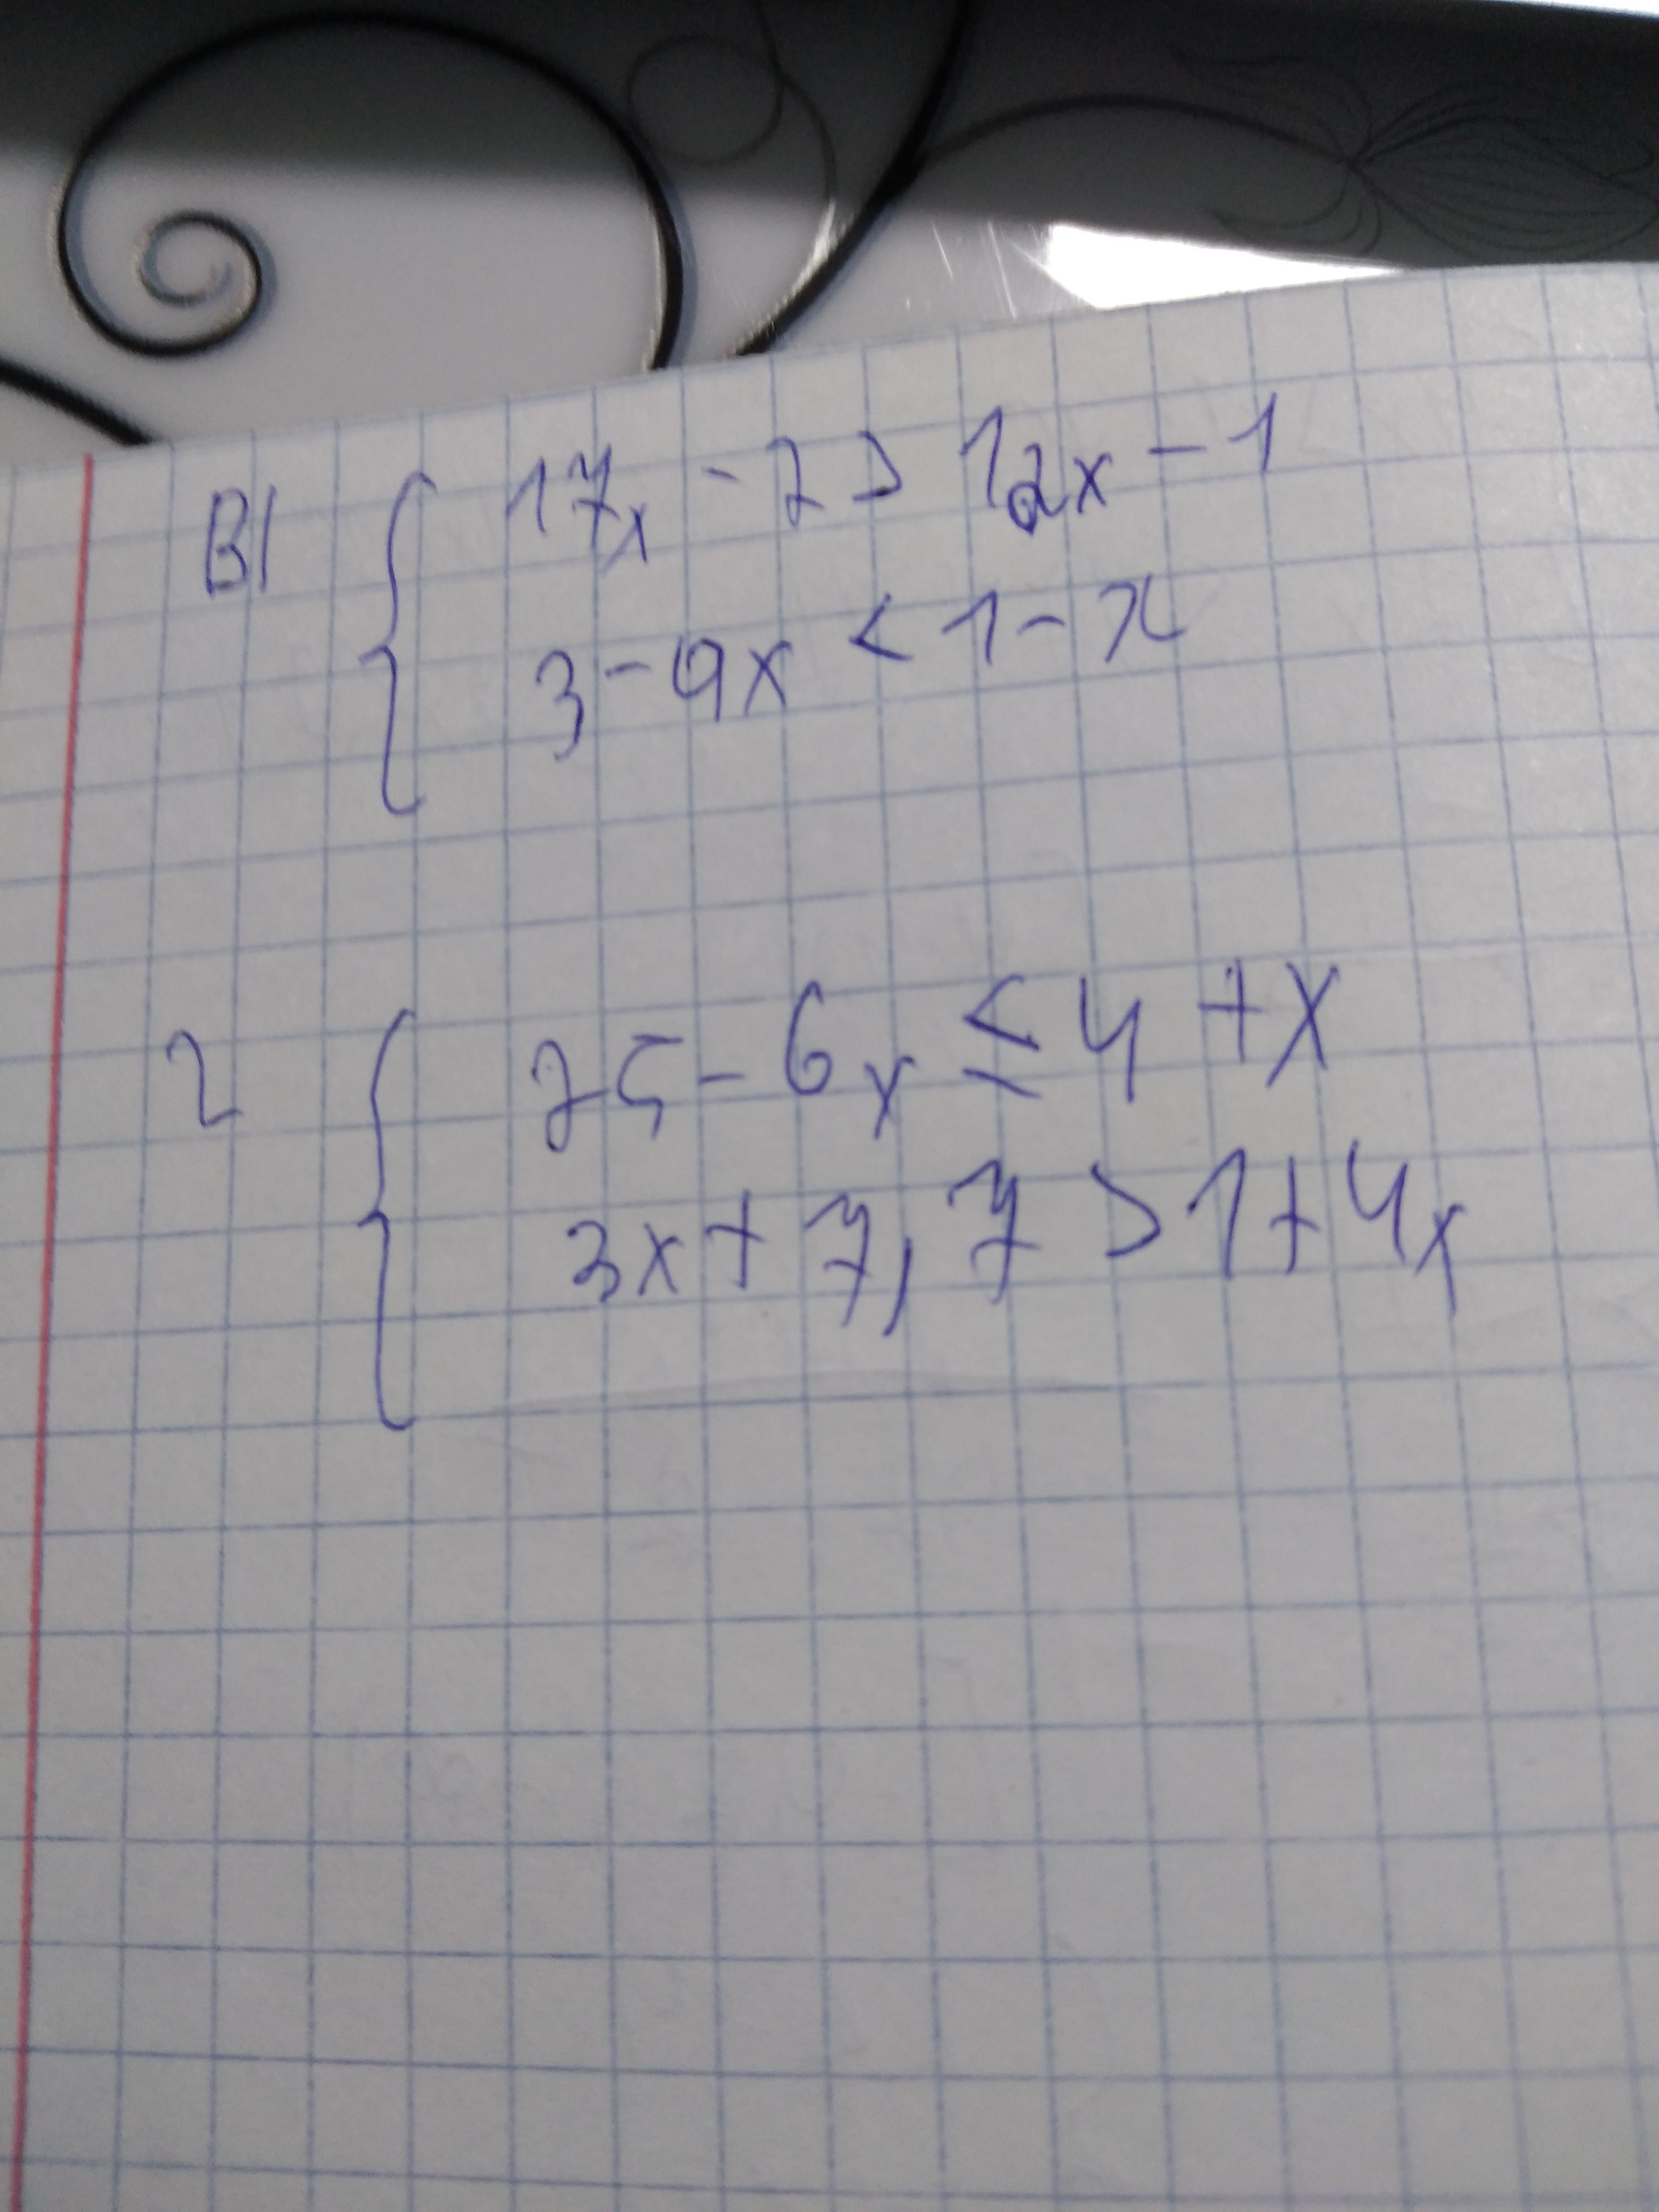 B1 { 17x - 2 > 12x - 1
3 - 9x < 1 - x
2 { 25 - 6x ≤ 4 + x
3x + 7,7 > 1 + 4x